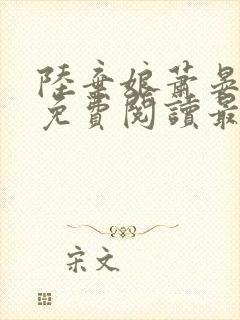 陸棄娘蕭晏
免費閱讀最
宋文